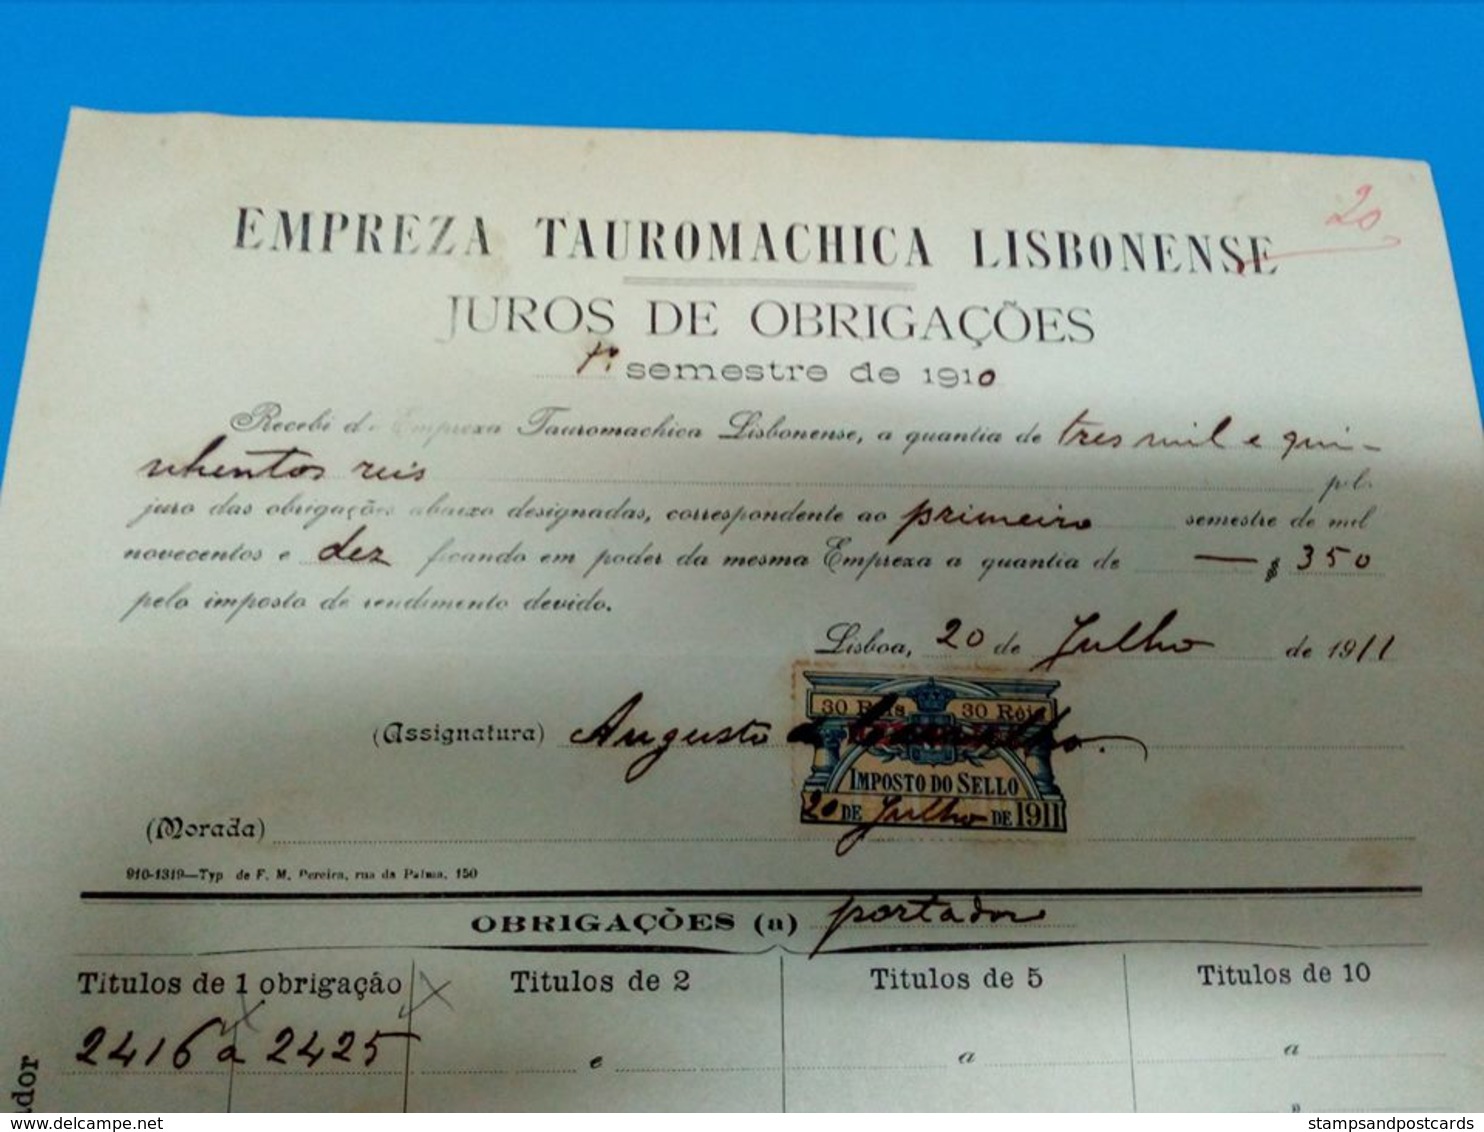 20
EMPREZA TAUROMACHICA LISBONENSE
JUROS DE OBRIGAÇÕES
1º semestre de 1910
Recebi da Empreza Tauromachica Lisbonense, a quantia de tres mil e qui-
nhentos reis pelo
juro das obrigações abaixo designadas, correspondente ao primeiro semestre de mil
novecentos e dez ficando em poder da mesma Empreza a quantia de — $ 350
pelo imposto de rendimento devido.
Lisboa, 20 de Julho de 1911
30 Réis 30 Réis
(Assignatura) Augusto de
IMPOSTO DO SELLO
20 DE Julho DE 1911
(Morada)
910-1319—Typ de F. M. Pereira, rua da Palma, 150
OBRIGAÇÕES (a) portador
Titulos de 1 obrigação Titulos de 2 Titulos de 5 Titulos de 10
2416 a 2425 e a a
ador
stampsandpostcards
delcampe.net
stampsandpostcards